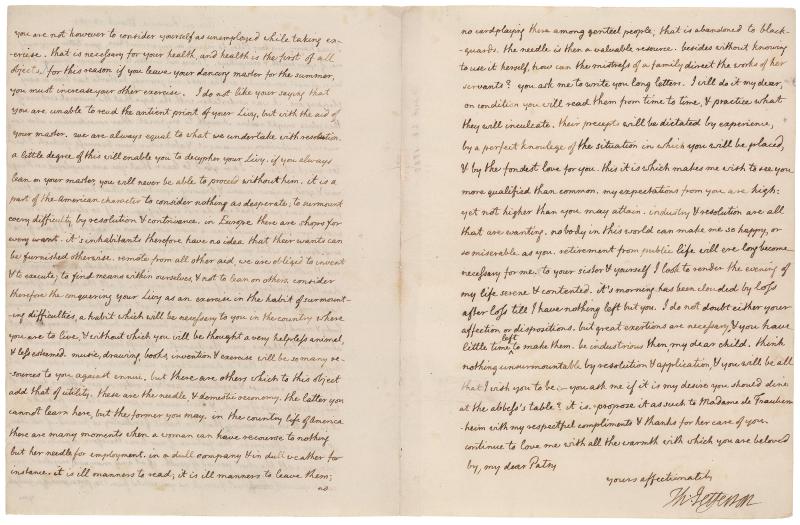 you are not however to consider yourself as unemployed while taking ex-
-ercise. that is necessary for your health, and health is the first of all
objects. for this reason if you leave your dancing master for the summer,
you must increase your other exercise. I do not like your saying that
you are unable to read the antient print of your Livy, but with the aid of
your master. we are always equal to what we undertake with resolution.
a little degree of this will enable you to decypher your Livy. if you always
lean on your master, you will never be able to proceed without him. it is a
part of the American character to consider nothing as desperate; to surmount
every difficulty by resolution & contrivance. in Europe there are shops for
every want. it's inhabitants therefore have no idea that their wants can
be furnished otherwise. remote from all other aid, we are obliged to invent
& to execute; to find means within ourselves, & not to lean on others. consider
therefore the conquering your Livy as an exercise in the habit of surmount-
-ing difficulties, a habit which will be necessary to you in the country where
you are to live, & without which you will be thought a very helpless animal,
& less esteemed. music, drawing, books, invention & exercise will be so many re-
-sources to you against ennui. but there are others which to this object
add that of utility. these are the needle & domestic oeconomy. the latter you
cannot learn here, but the former you may. in the country life of America
there are many moments when a woman can have recourse to nothing
but her needle for employment. in a dull company & in dull weather for
instance. it is ill manners to read; it is ill manners to leave them;
no
no cardplaying there among genteel people; that is abandoned to black-
-guards. the needle is then a valuable resource. besides without knowing
to use it herself, how can the mistress of a family direct the works of her
servants? you ask me to write you long letters. I will do it my dear,
on condition you will read them from time to time, & practice what
they will inculcate. their precepts will be dictated by experience,
by a perfect knowlege of the situation in which you will be placed,
& by the fondest love for you. this it is which makes me wish to see you
more qualified than common. my expectations from you are high:
yet not higher than you may attain. industry & resolution are all
that are wanting. nobody in this world can make me so happy, or
so miserable as you. retirement from public life will ere long become
necessary for me. to your sister & yourself I look to render the evening of
my life serene & contented. it's morning has been clouded by loss
after loss till I have nothing left but you. I do not doubt either your
affection or dispositions. but great exertions are necessary, & you have
little time left to make them. be industrious then, my dear child. think
nothing unsurmountable by resolution & application, & you will be all
that I wish you to be. you ask me if it is my desire you should dine
at the abbess's table? it is. propose it as such to Madame de Frauben-
-heim with my respectful compliments & thanks for her care of you.
continue to love me with all the warmth with which you are beloved
by, my dear Patsy
yours affectionately
Th: Jefferson